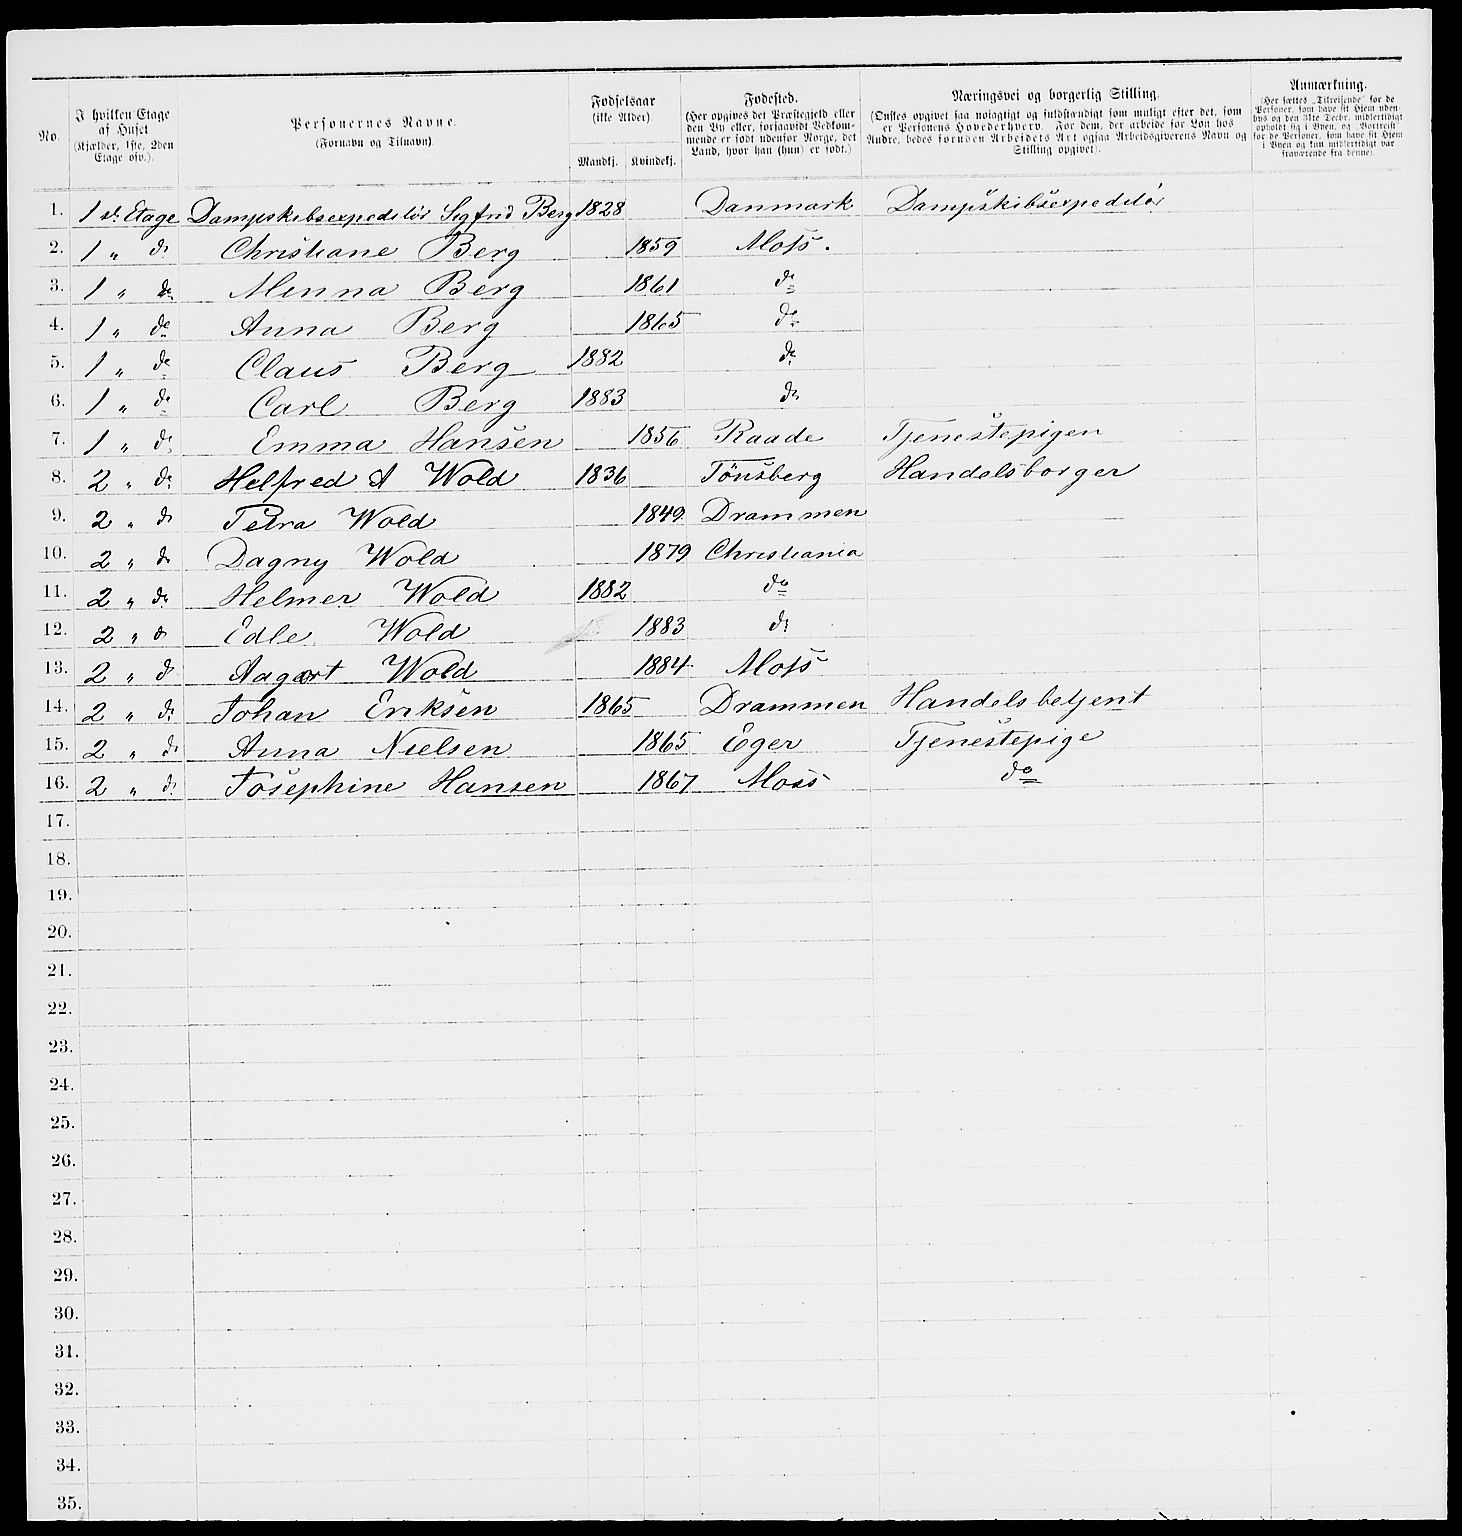 No. | I hvilken Etage af Huset (Kjælder, 1ste, 2den Etage osv.). | Personernes Navne. (Fornavn og Tilnavn). | Fødselsaar (ikke Alder) Mandkj. | Kvindekj. | Fødested. (Her opgives det Præstegjeld eller den By eller, forsaavidt Vedkommende er født udenfor Norge, det Land, hvor han (hun) er født.) | Næringsvei og borgerlig Stilling. (Ønskes opgivet saa nøiagtigt og fuldstændigt som muligt efter det, som er Personens Hovederhverv. For dem, der arbeide for Løn hos Andre, bedes foruden Arbeidets Art ogsaa Arbeidsgiverens Navn og Stilling opgivet). | Anmærkning. (Her sættes „Tilreisende“ for de Personer, som have sit Hjem udenbys og den 31te Decbr. midlertidigt opholdt sig i Byen, og „Bortreist“ for de Personer, som have sit Hjem i Byen og kun midlertidigt var fraværende fra denne).
1. 1 st. Etage Dampskibsexpeditør Sigfrid Berg 1828 Danmark Dampskibsexpeditør
2. 1 " do Christiane Berg 1859 Moss.
3. 1 " do Minna Berg 1861 do
4. 1 " do Anna Berg 1865 do
5. 1 " do Claus Berg 1882 do
6. 1 " do Carl Berg 1883 do
7. 1 " do Emma Hansen 1856 Raade Tjenestepigen
8. 2 " do Helfred A Wold 1836 Tönsberg Handelsborger
9. 2 " do Petra Wold 1849 Drammen
10. 2 " do Dagny Wold 1879 Christiania
11. 2 " do Helmer Wold 1882 do
12. 2 " do Edle Wold 1883 do
13. 2 " do Aagot Wold 1884 Moss
14. 2 " do Johan Eriksen 1865 Drammen Handelsbetjent
15. 2 " do Anna Nielsen 1865 Eger Tjenestepige
16. 2 " do Josephine Hansen 1867 Moss do
17.
18.
19.
20.
21.
22.
23.
24.
25.
26.
27.
28.
29.
30.
31.
32.
33.
34.
35.